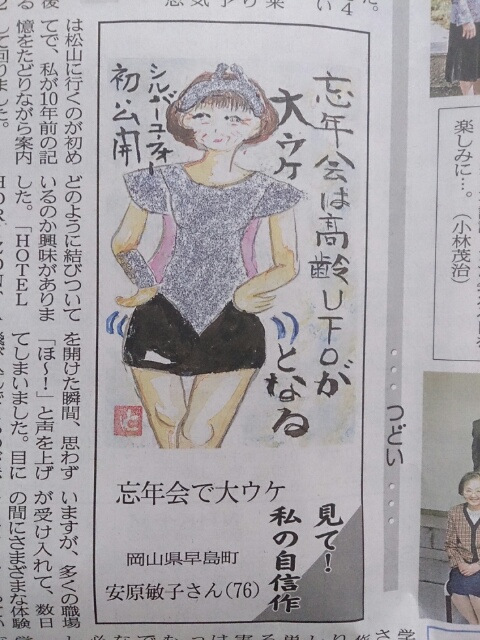 楽しみに…。
(小林茂治)
つどい
忘年会は高齢UFOが
大ウケ
となる
シルバーユーフォー
初公開
忘年会で大ウケ
見て!
私の自信作
岡山県早島町
安原敏子さん(76)
は松山に行くのが初め
てで、私が10年前の記
憶をたどりながら案内
して回りました。
どのように結びついて
いるのか興味がありま
した。「HOTEL
を開けた瞬間、思わず
「ほ〜!」と声を上げ
てしまいました。目に
いますが、多くの職場
が受け入れて、数日
の間にさまざまな体験